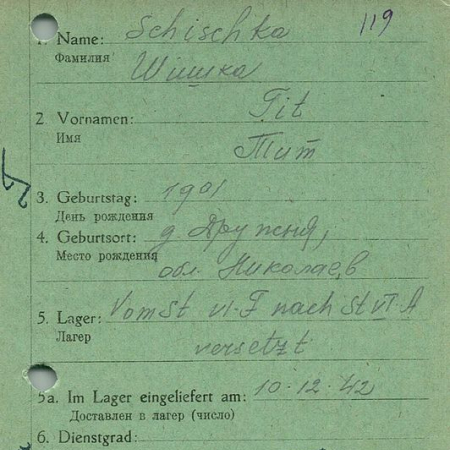 119
1. Name: Schischka
Фамилия Шишка
2 Vornamen: Tit
Имя Тит
3. Geburtstag: 1901
День рождения
4. Geburtsort: д Дружня,
Место рождения обл. Николаев
5. Lager: Vom St VI-F nach St VI-A
Лагер versetzt
5a. Im Lager eingeliefert am: 10-12-42
Доставлен в лагер (число)
6. Dienstgrad: